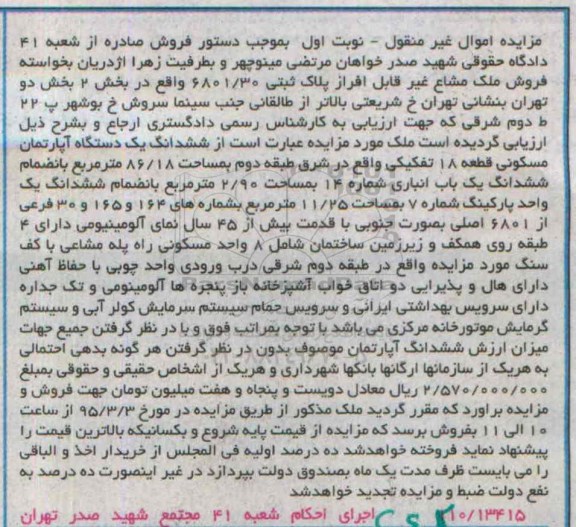 مزایده اموال غیر منقول - نوبت اول بموجب دستور فروش صادره از شعبه ۴۱
دادگاه حقوقی شهید صدر خواهان مرتضی مینوچهر و بطرفیت زهرا اژدریان بخواسته
فروش ملک مشاع غیر قابل افراز پلاک ثبتی ۶۸۰۱/۳۰ واقع در بخش ۲ بخش دو
تهران بنشانی تهران خ شریعتی بالاتر از طالقانی جنب سینما سروش خ بوشهر پ ۲۲
ط دوم شرقی که جهت ارزیابی به کارشناس رسمی دادگستری ارجاع و بشرح ذیل
ارزیابی گردیده است ملک مورد مزایده عبارت است از ششدانگ یک دستگاه آپارتمان
مسکونی قطعه ۱۸ تفکیکی واقع در شرق طبقه دوم بمساحت ۸۶/۱۸ مترمربع بانضمام
ششدانگ یک باب انباری شماره ۱۴ بمساحت ۲/۹۰ مترمربع بانضمام ششدانگ یک
واحد پارکینگ شماره ۷ بمساحت ۱۱/۲۵ مترمربع بشماره های ۱۶۴ و ۱۶۵ و ۳۰ فرعی
از ۶۸۰۱ اصلی بصورت جنوبی با قدمت بیش از ۴۵ سال نمای آلومینیومی دارای ۴
طبقه روی همکف و زیرزمین ساختمان شامل ۸ واحد مسکونی راه پله مشاعی با کف
سنگ مورد مزایده واقع در طبقه دوم شرقی درب ورودی واحد چوبی با حفاظ آهنی
دارای هال و پذیرایی دو اتاق خواب آشپزخانه باز پنجره ها آلومینومی و تک جداره
دارای سرویس بهداشتی ایرانی و سرویس حمام سیستم سرمایش کولر آبی و سیستم
گرمایش موتورخانه مرکزی می باشد با توجه بمراتب فوق و با در نظر گرفتن جمیع جهات
میزان ارزش ششدانگ آپارتمان موصوف بدون در نظر گرفتن هر گونه بدهی احتمالی
به هریک از سازمانها ارگانها بانکها شهرداری و هریک از اشخاص حقیقی و حقوقی بمبلغ
۲/۵۷۰/۰۰۰/۰۰۰ ریال معادل دویست و پنجاه و هفت میلیون تومان جهت فروش و
مزایده براورد که مقرر گردید ملک مذکور از طریق مزایده در مورخ ۹۵/۳/۳ از ساعت
۱۰ الی ۱۱ بفروش برسد که مزایده از قیمت پایه شروع و بکسانیکه بالاترین قیمت را
پیشنهاد نماید فروخته خواهدشد ده درصد اولیه فی المجلس از خریدار اخذ و الباقی
را می بایست ظرف مدت یک ماه بصندوق دولت بپردازد در غیر اینصورت ده درصد به
نفع دولت ضبط و مزایده تجدید خواهدشد
۱۰/۱۳۴۱۵ اجرای احکام شعبه ۴۱ مجتمع شهید صدر تهران